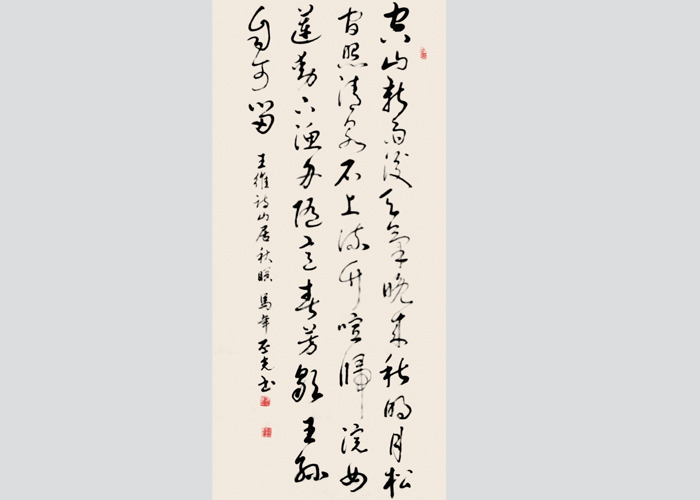 空山新雨後天氣晚來秋明月松
間照清泉石上流竹喧歸浣女
蓮動下漁舟隨意春芳歇王孫
自可留
王維詩山居秋暝 馬年 光書